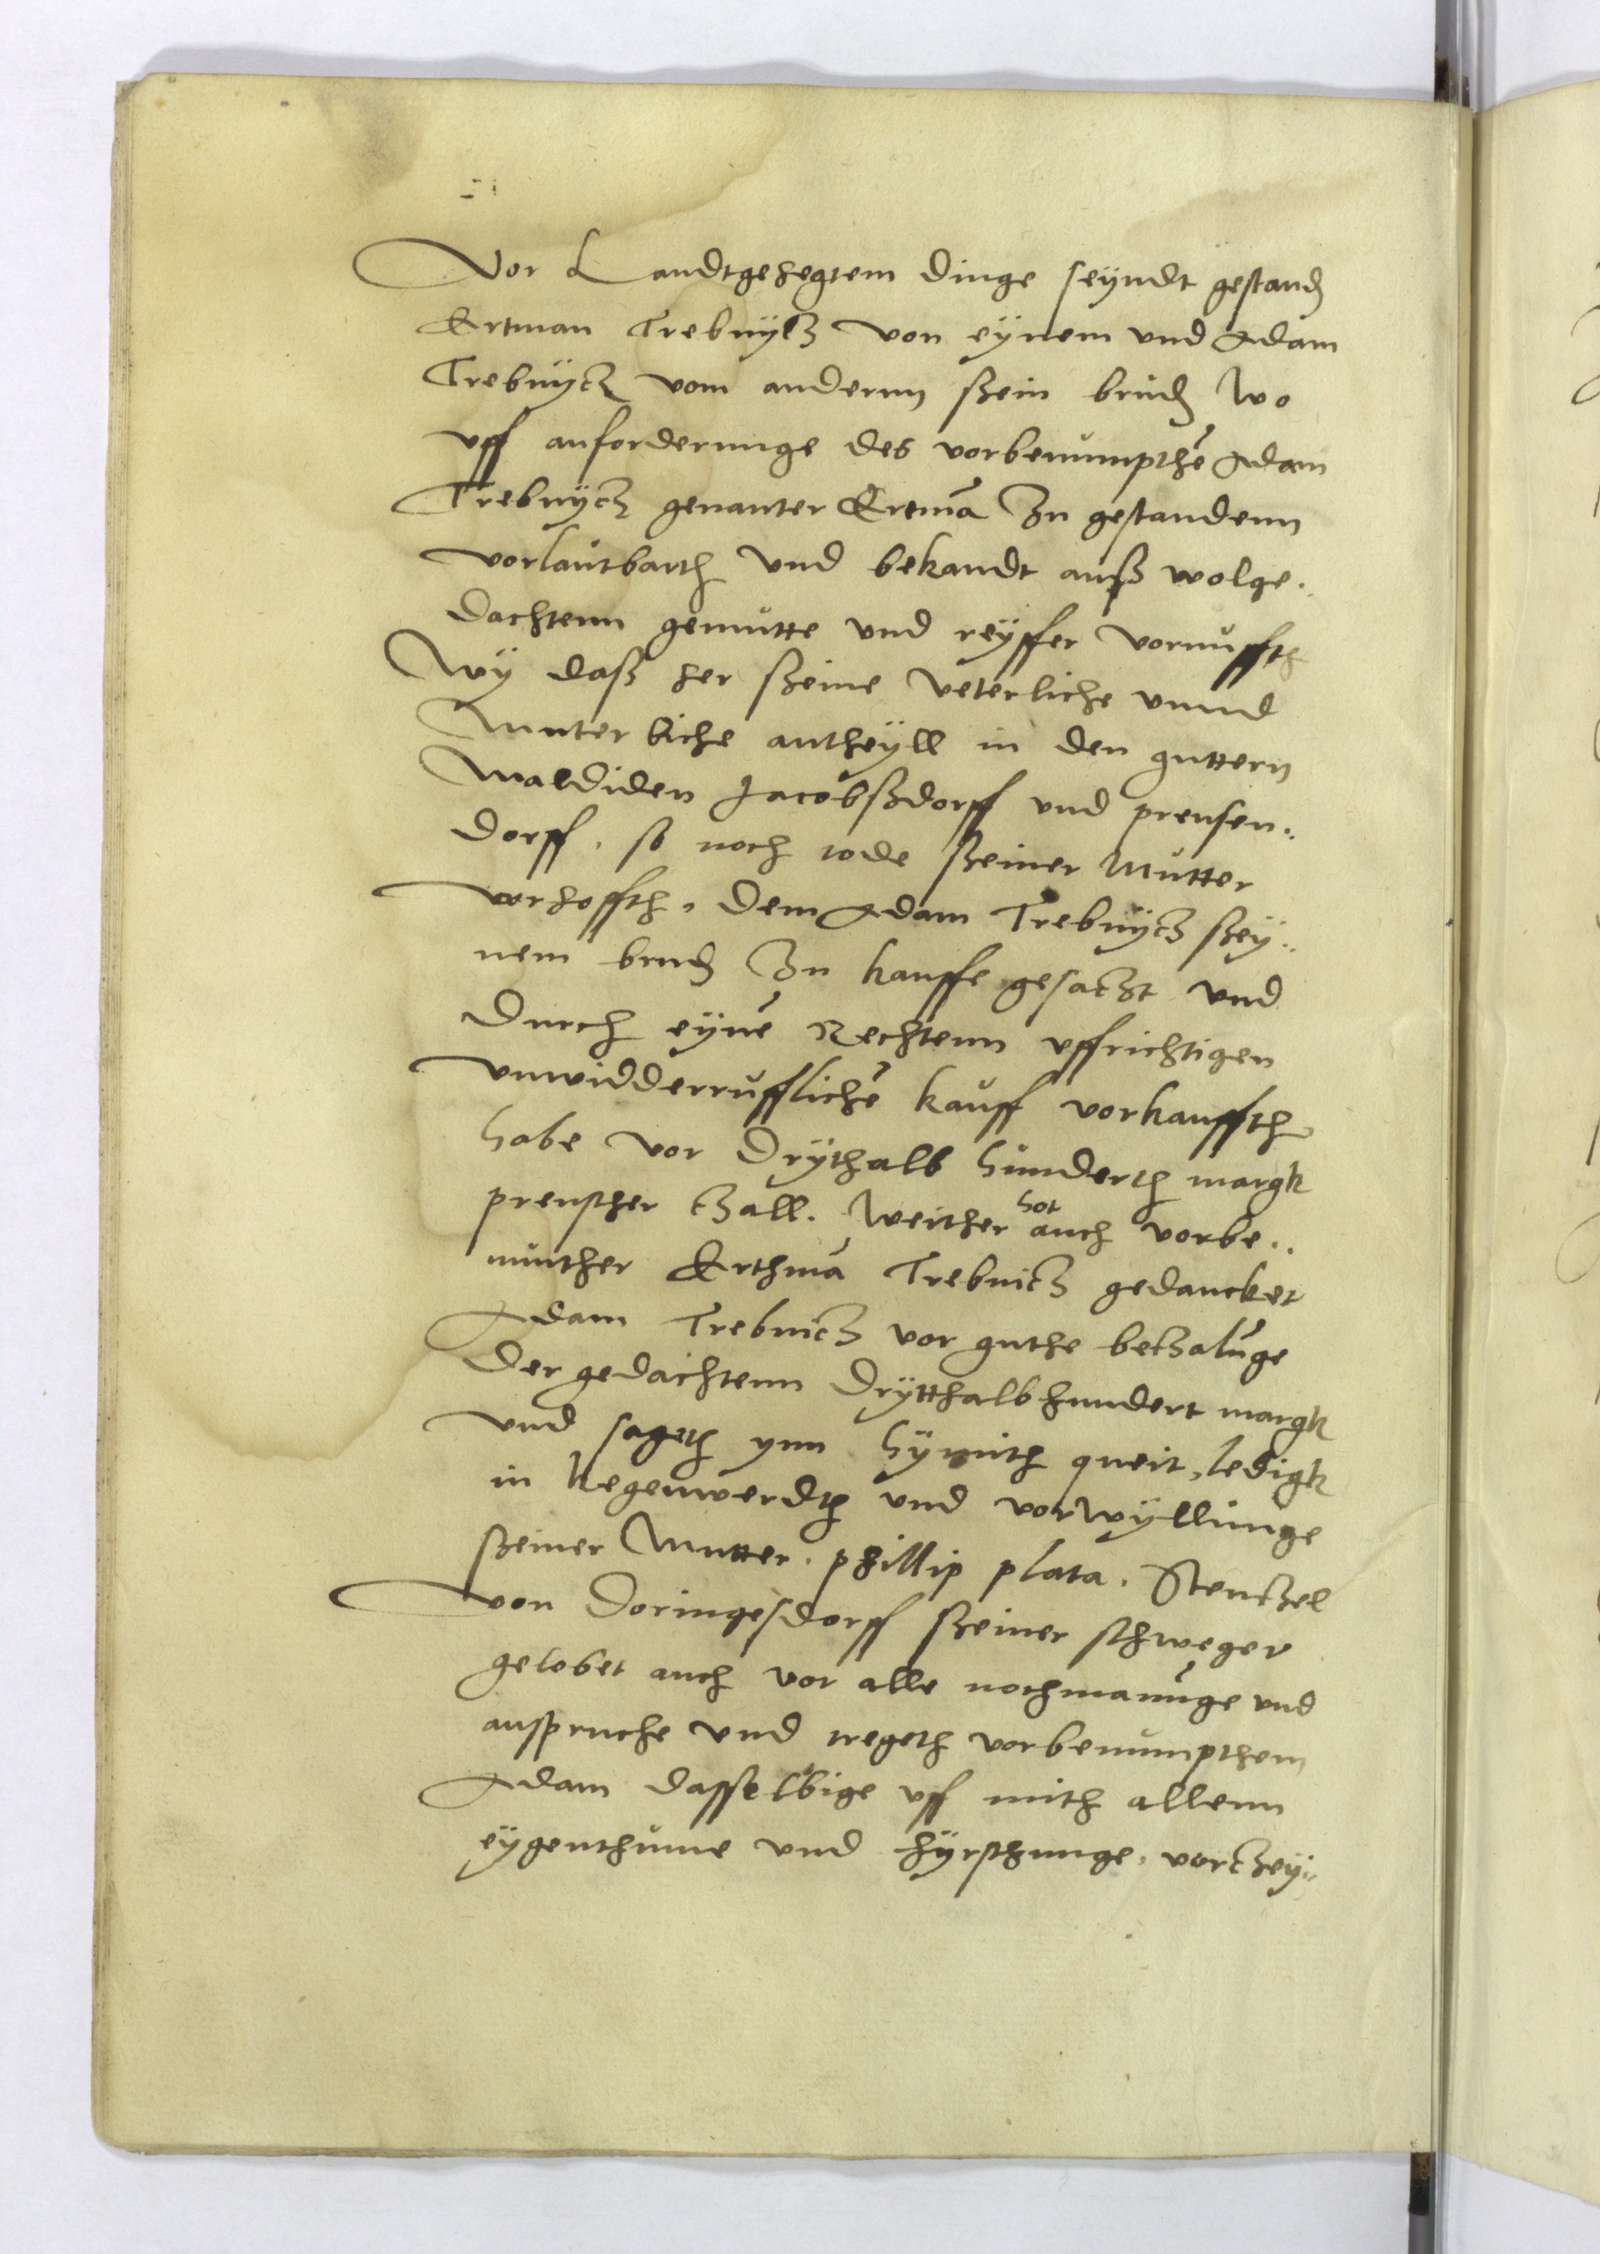 Vor Landtgehegtem dinge seyndt gestand
Ertman Trebnytz von eynem und Adam
Trebnytz vom andernn szein brud Wo
uff anforderunge des vorbenumpthē Adam
Trebnytz genanter Ertmā Zu gestandenn
vorlautbarth und bekandt ausz wolge..
dachtenn gemutte und reyffer vornufft
Wy dasz her szeine Veterliche unnd
Mutterliche antheyll in den guttern
Maldiden Jacobszdorff und preusen..
dorff, so noch tode szeiner Mutter
vorhoffth, dem Adam Trebnytz szey..
nem brud Zu kauffe gesatzt und
durch eynē Rechtenn uffrichtigen
unwidderrufflichē kauff vorkauffth
habe vor drythalb hunderth margk
preuscher tzall. Weither hot auch vorbe..
numther Erthmā Trebnitz gedancket
Adam Trebnitz vor guthe betzalūge
der gedachtenn drytthalbhundert margk
und sageth ynn hymith queit, ledigk
in kegenwerdth und vorwyllunge
szeiner Mutter, phillip plata, Stentzel
von Doringesdorff szeiner schweger
gelobet auch vor alle nochmanūge und
anspruche und tregeth vorbenumpthem
Adam dasselbige uff mith allenn
eygenthume und hyrschunge, vortzey..